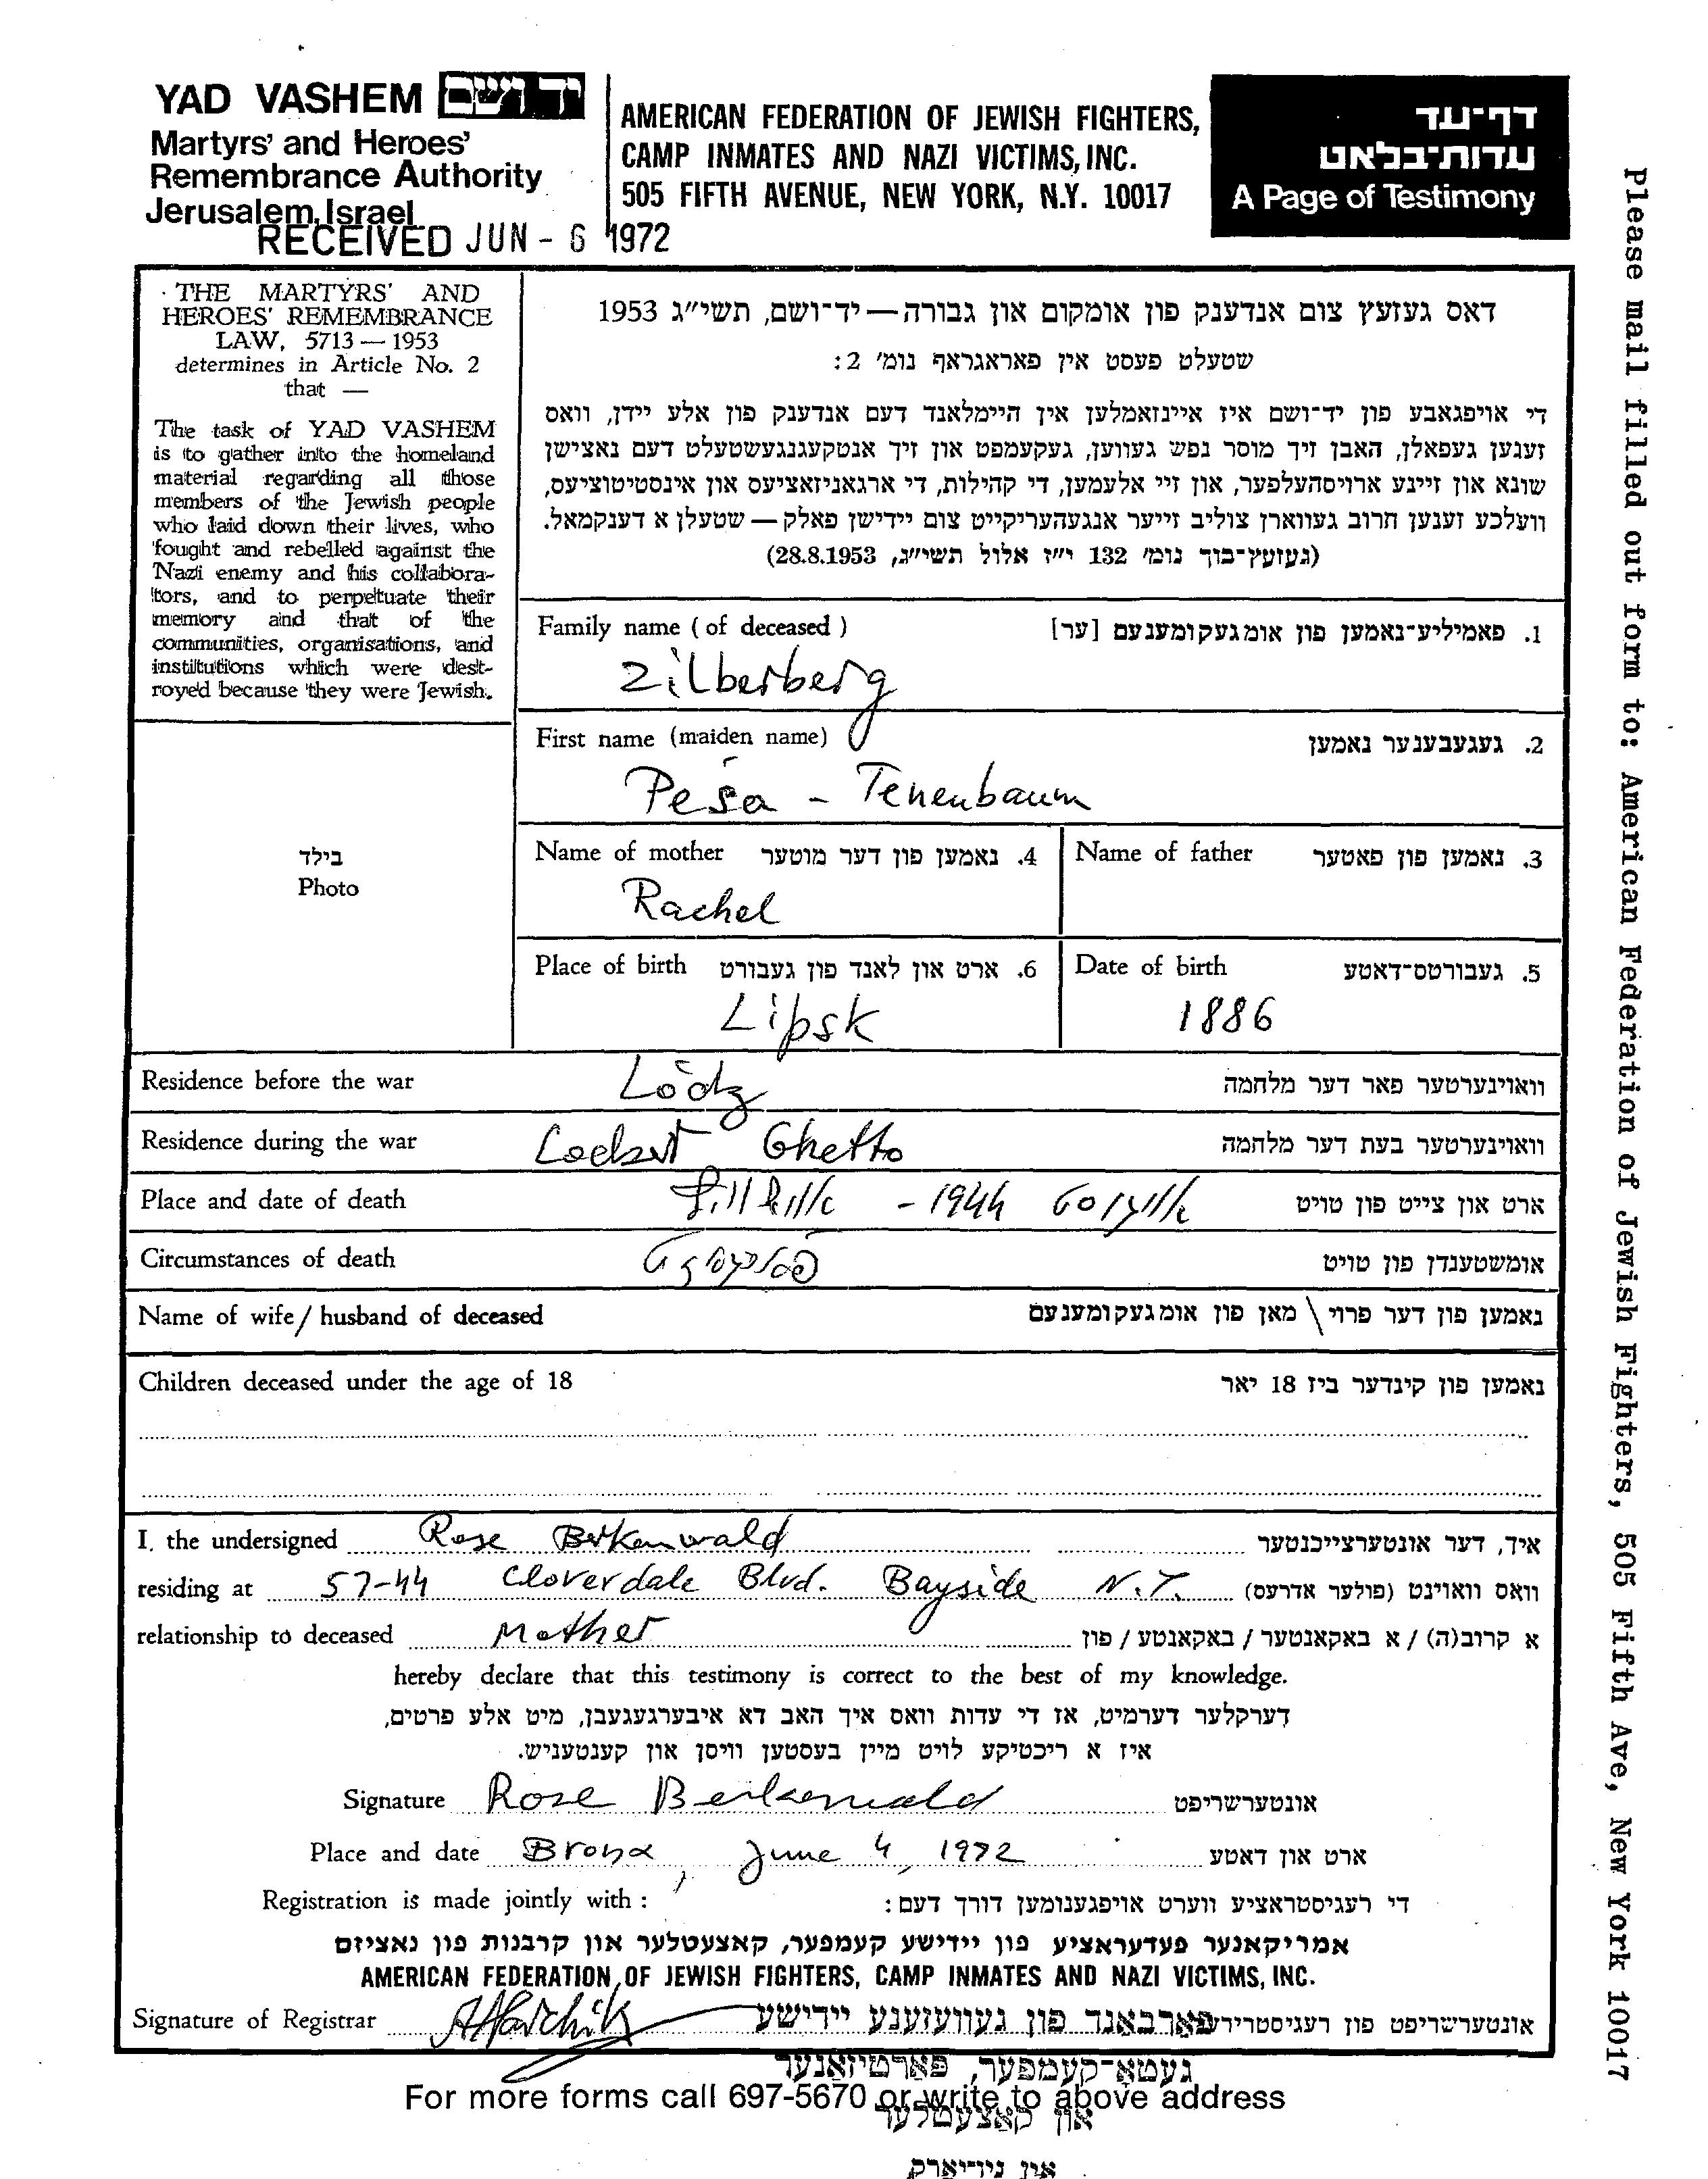 YAD VASHEM יד ושם
Martyrs' and Heroes'
Remembrance Authority
Jerusalem, Israel
RECEIVED JUN - 6 1972
AMERICAN FEDERATION OF JEWISH FIGHTERS,
CAMP INMATES AND NAZI VICTIMS, INC.
505 FIFTH AVENUE, NEW YORK, N.Y. 10017
דף־עד
עדות־בלאט
A Page of Testimony
THE MARTYRS' AND
HEROES' REMEMBRANCE
LAW, 5713 — 1953
determines in Article No. 2
that —
The task of YAD VASHEM
is to gather into the homeland
material regarding all those
members of the Jewish people
who laid down their lives, who
fought and rebelled against the
Nazi enemy and his collabora-
tors, and to perpetuate their
memory and that of the
communities, organisations, and
institutions which were dest-
royed because they were Jewish.
דאס געזעץ צום אנדענק פון אומקום און גבורה — יד־ושם, תשי"ג 1953
שטעלט פעסט אין פאראגראף נומ' 2:
די אויפגאבע פון יד־ושם איז איינזאמלען אין היימלאנד דעם אנדענק פון אלע יידן, וואס
זענען געפאלן, האבן זיך מוסר נפש געווען, געקעמפט און זיך אנטקעגנגעשטעלט דעם נאצישן
שונא און זיינע ארויסהעלפער, און זיי אלעמען, די קהילות, די ארגאניזאציעס און אינסטיטוציעס,
וועלכע זענען חרוב געווארן צוליב זייער אנגעהעריקייט צום יידישן פאלק — שטעלן א דענקמאל.
(געזעץ־בוך נומ' 132 י"ז אלול תשי"ג, 28.8.1953)
Family name ( of deceased ) 1. פאמיליע־נאמען פון אומגעקומענעם [ער]
Zilberberg
First name (maiden name) 2. געגעבענער נאמען
Pesa - Tenenbaum
בילד
Photo
Name of mother 4. נאמען פון דער מוטער
Rachel
Name of father 3. נאמען פון פאטער
Place of birth 6. ארט און לאנד פון געבורט
Lipsk
Date of birth 5. געבורטס־דאטע
1886
Residence before the war Lódz וואוינערטער פאר דער מלחמה
Residence during the war Ghetto וואוינערטער בעת דער מלחמה
Place and date of death - 1944 ארט און צייט פון טויט
Circumstances of death אומשטענדן פון טויט
Name of wife / husband of deceased נאמען פון דער פרוי \ מאן פון אומגעקומענעם
Children deceased under the age of 18 נאמען פון קינדער ביז 18 יאר
I, the undersigned Rose Berkenwald איך, דער אונטערצייכנטער
residing at 57-44 Cloverdale Blvd. Bayside N.Y. וואס וואוינט (פולער אדרעס)
relationship to deceased Mother א קרוב(ה) / א באקאנטער / באקאנטע / פון
hereby declare that this testimony is correct to the best of my knowledge.
דערקלער דערמיט, אז די עדות וואס איך האב דא איבערגעגעבן, מיט אלע פרטים,
איז א ריכטיקע לויט מיין בעסטען וויסן און קענטעניש.
Signature Rose Berkenwald אונטערשריפט
Place and date Bronx, June 4, 1972 ארט און דאטע
Registration is made jointly with : די רעגיסטראציע ווערט אויפגענומען דורך דעם:
אמריקאנער פעדעראציע פון יידישע קעמפער, קאצעטלער און קרבנות פון נאציזם
AMERICAN FEDERATION OF JEWISH FIGHTERS, CAMP INMATES AND NAZI VICTIMS, INC.
Signature of Registrar אונטערשריפט פון
פארבאנד פון געוועזענע יידישע
געטא־קעמפער, פארטיזאנער
For more forms call 697-5670 or write to above address
און קאצעטלער
אין ניו־יארק
Please mail filled out form to: American Federation of Jewish Fighters, 505 Fifth Ave, New York 10017